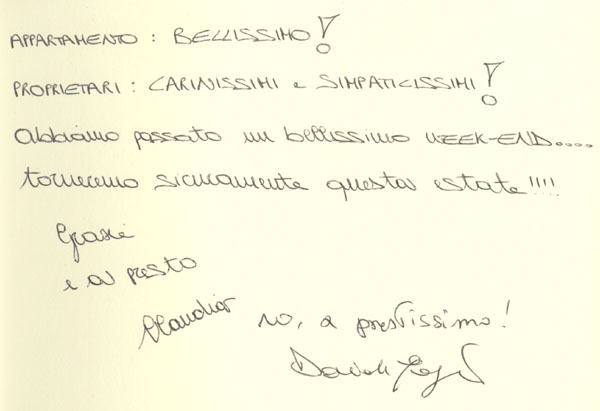 APPARTAMENTO : BELLISSIMO!
PROPRIETARI : CARINISSIMI e SIMPATICISSIMI!
Abbiamo passato un bellissimo WEEK-END....
torneremo sicuramente questa estate!!!!
Grazie
e a presto
Claudia
no, a prestissimo!
Davide